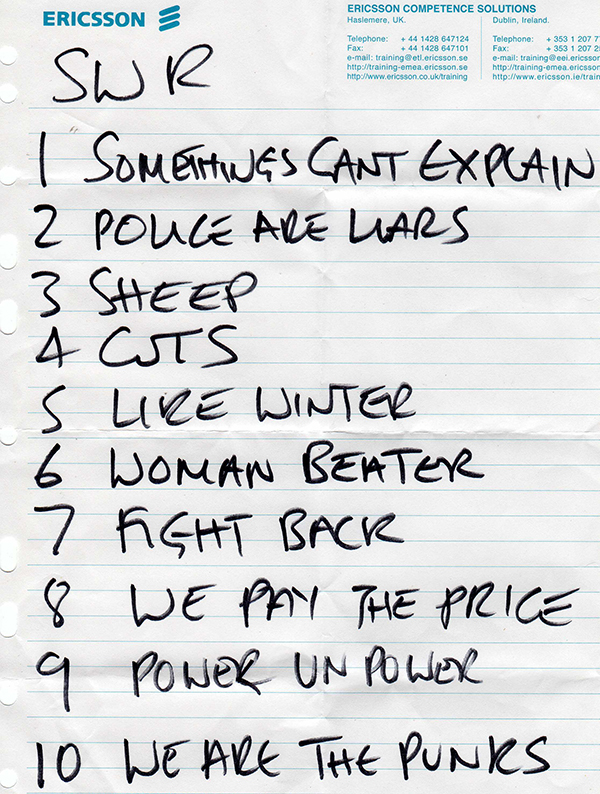 ERICSSON
ERICSSON COMPETENCE SOLUTIONS
Haslemere, UK. Dublin, Ireland.
Telephone: + 44 1428 647124 Telephone: + 353 1 207 7
Fax: + 44 1428 647101 Fax: + 353 1 207 2
e-mail: training@etl.ericsson.se e-mail: training@eei.ericsson
http://training-emea.ericsson.se http://training-emea.ericsson
http://www.ericsson.co.uk/training http://www.ericsson.ie/train
SWR
1 SOMETHINGS CANT EXPLAIN
2 POLICE ARE LIARS
3 SHEEP
4 CUTS
5 LIKE WINTER
6 WOMAN BEATER
7 FIGHT BACK
8 WE PAY THE PRICE
9 POWER UN POWER
10 WE ARE THE PUNKS